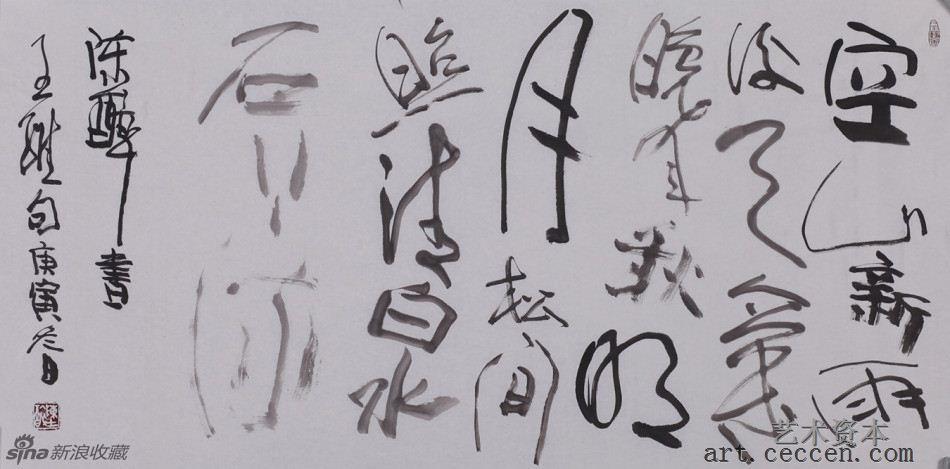 空山新雨
後天氣
晚来秋明
月松间
照清泉
石上流
陈醉書
王維句庚寅冬日
sina新浪收藏
艺术资本
art.ceccen.com